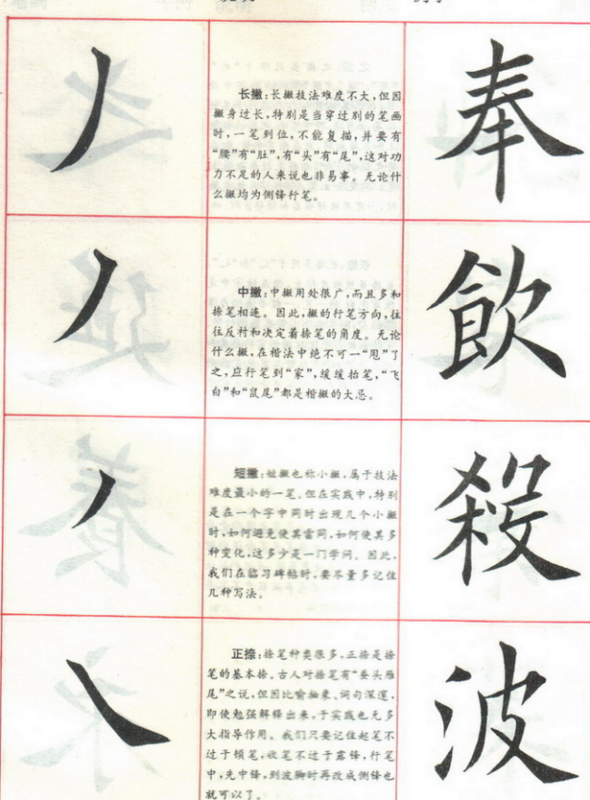 长撇：长撇技法难度不大，但因
撇身过长，特别是当穿过别的笔画
时，一笔到位，不能复描，并要有
“腰”有“肚”，有“头”有“尾”，这对功
力不足的人来说也非易事。无论什
么撇均为侧锋行笔。
奉
中撇：中撇用处很广，而且多和
捺笔相连。因此，撇的行笔方向，往
往反衬和决定着捺笔的角度。无论
什么撇，在楷法中绝不可一“甩”了
之，应行笔到“家”，缓缓抬笔，“飞
白”和“鼠尾”都是楷撇的大忌。
飲
短撇：短撇也称小撇，属于技法
难度最小的一笔。但在实践中，特别
是在一个字中同时出现几个小撇
时，如何避免使其雷同，如何使其多
种变化，这多少是一门学问。因此，
我们在临习碑帖时，要尽量多记住
几种写法。
殺
正捺：捺笔种类很多，正捺是捺
笔的基本捺。古人对捺笔有“蚕头雁
尾”之说，但因比喻抽象，词句深涩，
即使勉强解释出来，于实践也无多
大指导作用。我们只要记住起笔不
过于顿笔，收笔不过于露锋，行笔
中，先中锋，到波脚时再改成侧锋也
就可以了。
波